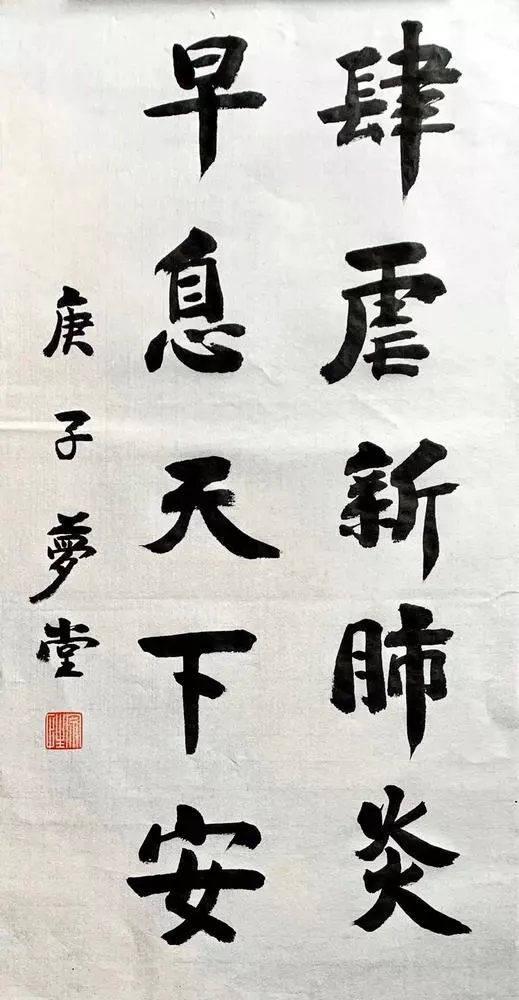 肆虐新肺炎
早息天下安
庚子夢堂